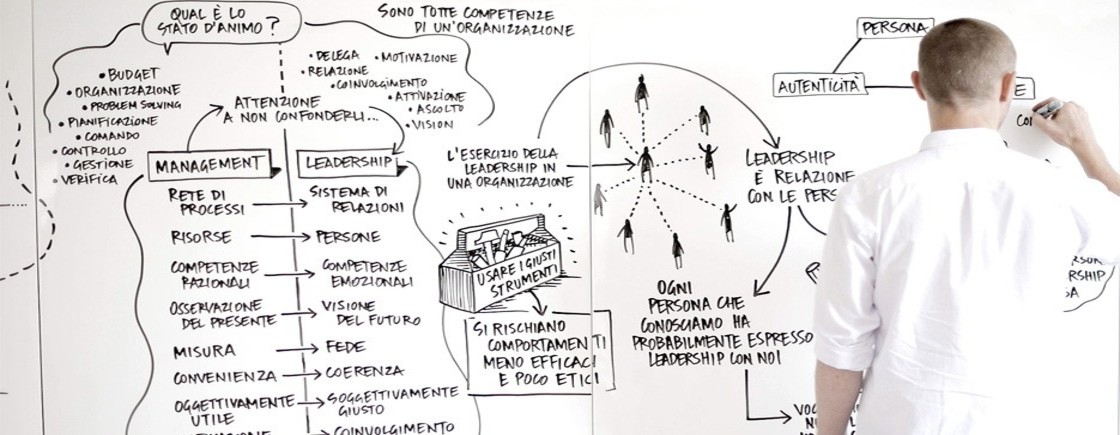 QUAL È LO
STATO D'ANIMO?
SONO TUTTE COMPETENZE
DI UN'ORGANIZZAZIONE
• BUDGET
• ORGANIZZAZIONE
• PROBLEM SOLVING
• PIANIFICAZIONE
• COMANDO
• CONTROLLO
• GESTIONE
• VERIFICA
• DELEGA
• MOTIVAZIONE
• RELAZIONE
• COINVOLGIMENTO
• ATTIVAZIONE
• ASCOLTO
• VISION
ATTENZIONE
A NON CONFONDERLI...
MANAGEMENT
LEADERSHIP
RETE DI
PROCESSI
SISTEMA DI
RELAZIONI
RISORSE
PERSONE
COMPETENZE
RAZIONALI
COMPETENZE
EMOZIONALI
OSSERVAZIONE
DEL PRESENTE
VISIONE
DEL FUTURO
MISURA
FEDE
CONVENIENZA
COERENZA
OGGETTIVAMENTE
UTILE
SOGGETTIVAMENTE
GIUSTO
COINVOLGIMENTO
L'ESERCIZIO DELLA
LEADERSHIP IN
UNA ORGANIZZAZIONE
USARE I GIUSTI
STRUMENTI
SI RISCHIANO
COMPORTAMENTI
MENO EFFICACI
E POCO ETICI
PERSONA
AUTENTICITÀ
E
LEADERSHIP
È RELAZIONE
CON LE PERS
OGNI
PERSONA CHE
CONOSCIAMO HA
PROBABILMENTE ESPRESSO
LEADERSHIP CON NOI